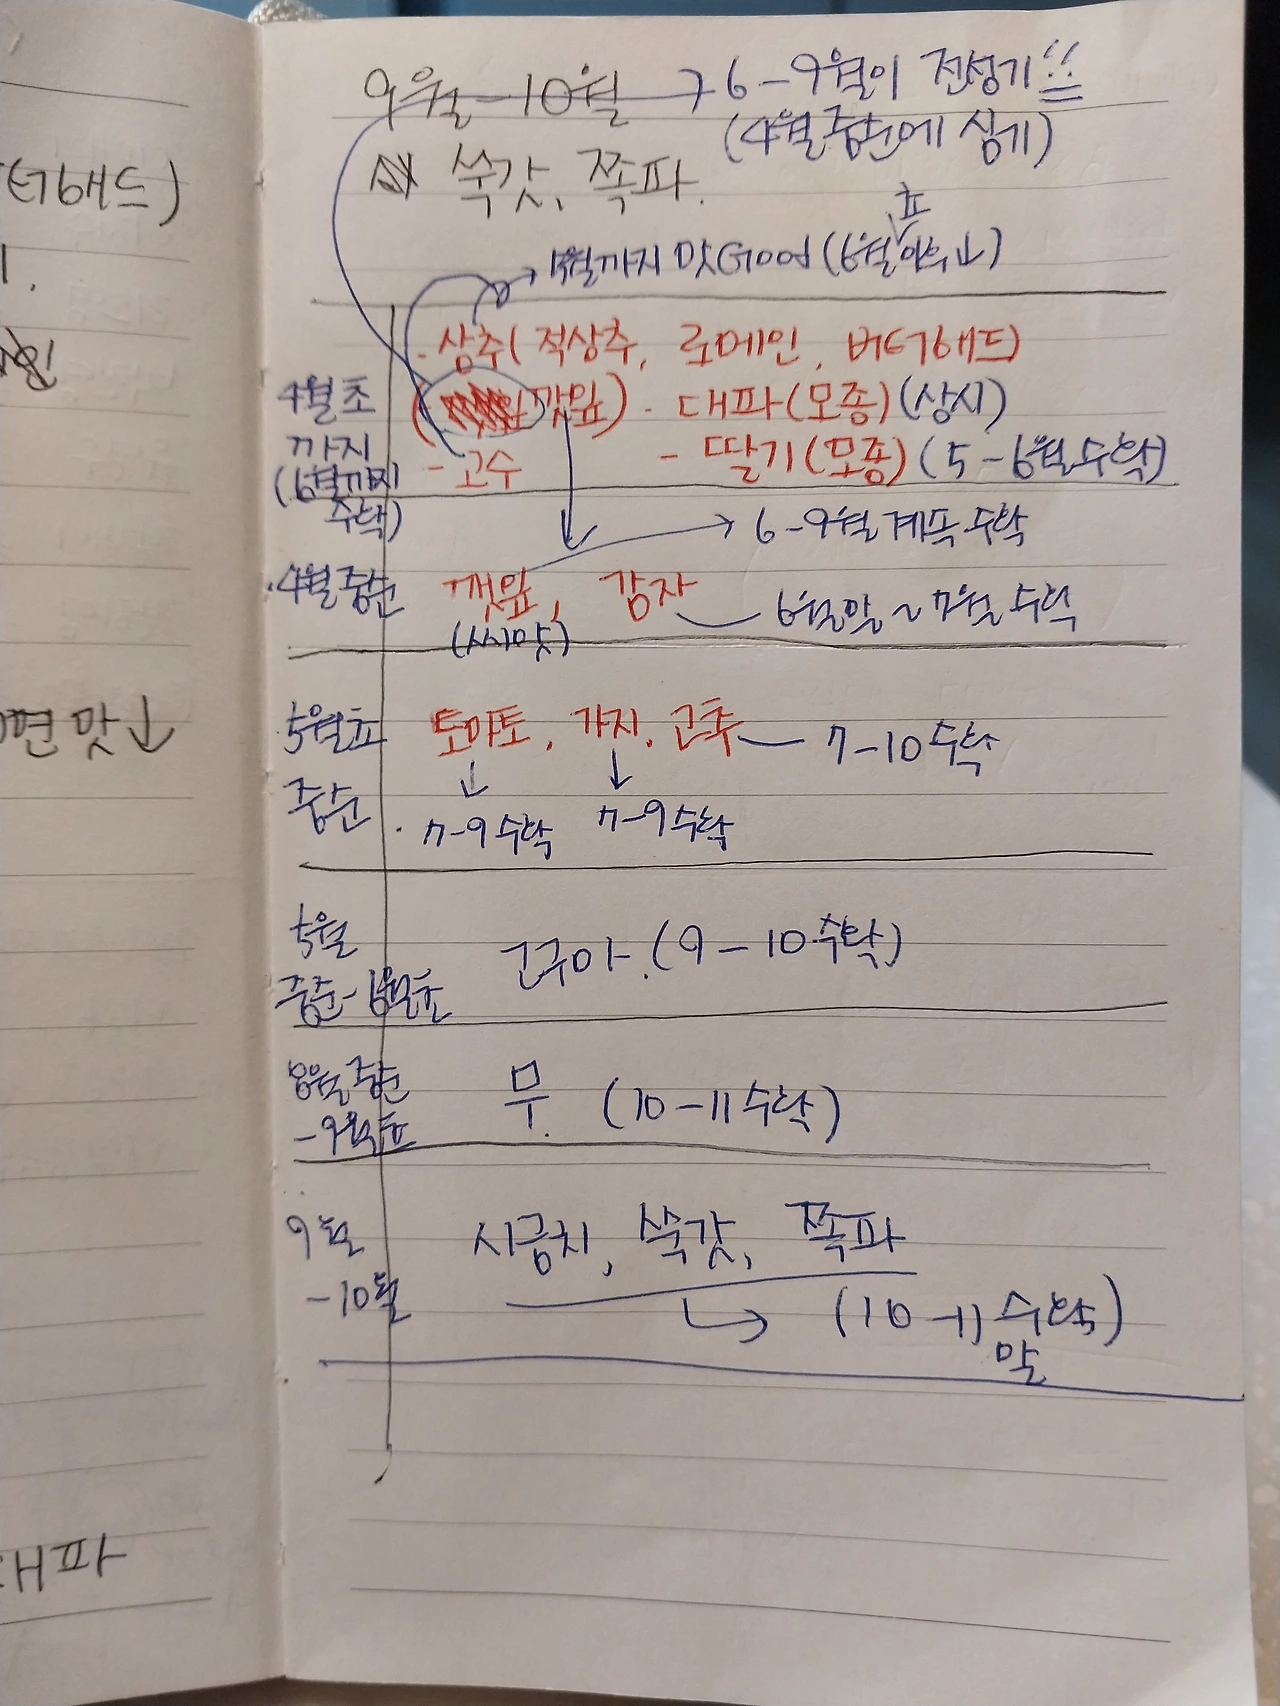 9월-10월 → 6-9월이 전성기!!
(4월중순에 심기)
쑥갓, 쪽파.
초
5월까지 맛Good (6월 이후↓)
·상추(적상추, 로메인, 버터헤드)
4월초 (- 깻잎) - 대파(모종)(상시)
까지 - 고수 - 딸기(모종)(5-6월수확)
(6월까지
수확)
→ 6-9월 계속 수확
·4월중순 깻잎, 감자 6월말~7월 수확
(씨앗)
5월초 토마토, 가지, 고추 7-10 수확
중순 ↓ ↓
7-9 수확 7-9 수확
5월
중순-6월초 고구마 (9-10 수확)
8월중순
-9월초 무 (10-11 수확)
9월
-10월 시금치, 쑥갓, 쪽파
→ (10-11 수확)
말
(터헤드)
면 맛↓
대파